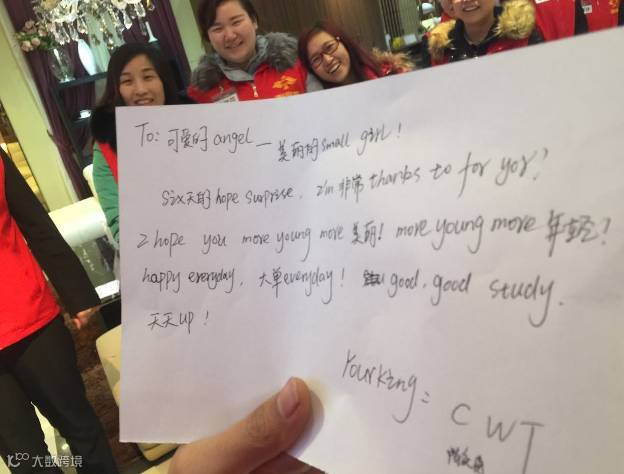 To: 可爱的 angel — 美丽的 small girl!
six天的 hope surprise, I'm 非常 thanks to for yor?
I hope you more young more 美丽! more young more 年轻?
happy everyday, 大单 everyday! good, good study.
天天up!
Your King: CWT
100 大数跨境